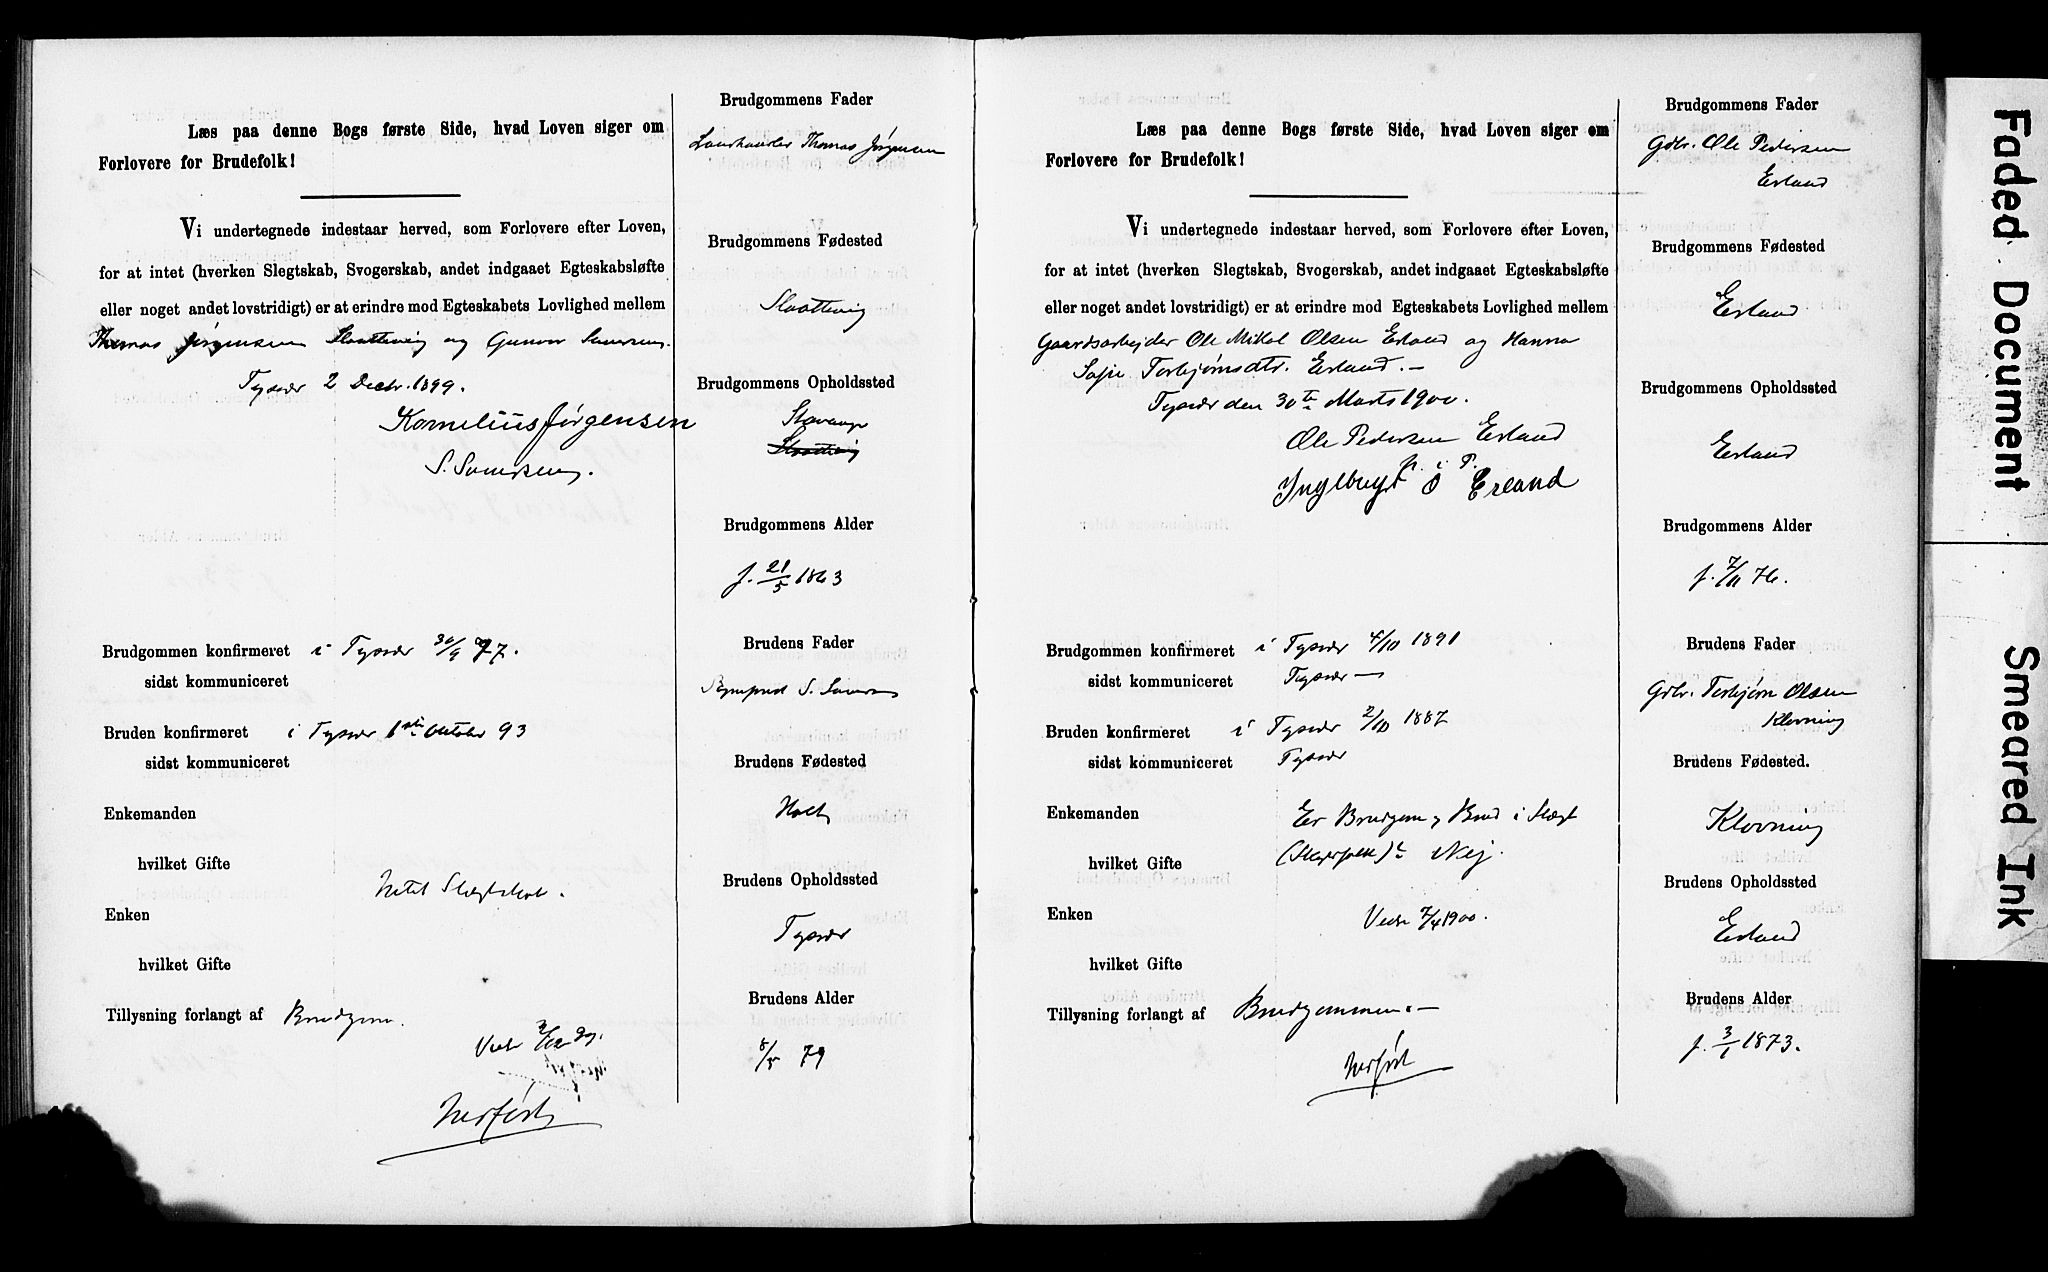 Læs paa denne Bogs første Side, hvad Loven siger om
Forlovere for Brudefolk!
Vi undertegnede indestaar herved, som Forlovere efter Loven,
for at intet (hverken Slegtskab, Svogerskab, andet indgaaet Egteskabsløfte
eller noget andet lovstridigt) er at erindre mod Egteskabets Lovlighed mellem
Thomas Jørgensen Slaattevig og Gunvor Samsens.
Tysvær 2 Decbr. 1899.
Kornelius Jørgensen
S. Samsens.
Brudgommen konfirmeret i Tysvær 30/9 77.
sidst kommuniceret
Bruden konfirmeret i Tysvær 1ste Oktober 93
sidst kommuniceret
Enkemanden
hvilket Gifte
Intet Slægtskab.
Enken
hvilket Gifte
Tillysning forlangt af Brudgom.
Indført
Brudgommens Fader
Thomas Jørgensen
Brudgommens Fødested
Slaattevig
Brudgommens Opholdssted
Stavanger
Slaattevig
Brudgommens Alder
f. 21/5 1863
Brudens Fader
Brudens Fødested
Holt
Brudens Opholdssted
Tysvær
Brudens Alder
8/5 79
Læs paa denne Bogs første Side, hvad Loven siger om
Forlovere for Brudefolk!
Vi undertegnede indestaar herved, som Forlovere efter Loven,
for at intet (hverken Slegtskab, Svogerskab, andet indgaaet Egteskabsløfte
eller noget andet lovstridigt) er at erindre mod Egteskabets Lovlighed mellem
Gaardsarbejder Ole Mikal Olsen Erland og Hanna
Sofie Torbjørnsdtr. Erland. —
Tysvær den 30te Marts 1900.
Ole Pedersen Erland
m. i P.
Inglbrigt O Erland
Brudgommen konfirmeret i Tysvær 4/10 1891
sidst kommuniceret Tysvær —
Bruden konfirmeret i Tysvær 2/10 1887
sidst kommuniceret Tysvær
Enkemanden Er Brudgom og Brud i Slægt
hvilket Gifte Nej.
Enken Viede 7/4 1900.
hvilket Gifte
Tillysning forlangt af Brudgommen. —
Indført
Brudgommens Fader
Gdbr. Ole Pedersen
Erland
Brudgommens Fødested
Erland
Brudgommens Opholdssted
Erland
Brudgommens Alder
f. 7/11 76.
Brudens Fader
Gdbr. Torbjørn Olsen
Klovning
Brudens Fødested.
Klovning
Brudens Opholdssted
Erland
Brudens Alder
f. 3/1 1873.
Faded Document
Smeared Ink